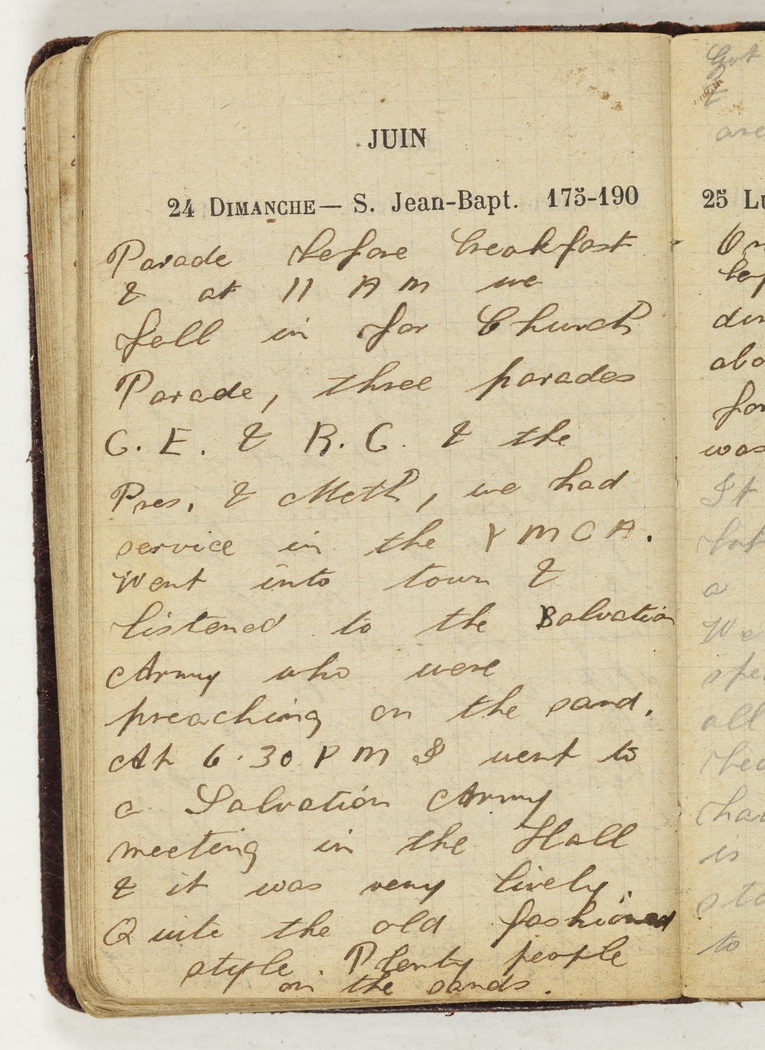 JUIN
24 DIMANCHE — S. Jean-Bapt. 175-190
Parade before breakfast
& at 11 A M we
fell in for Church
Parade, three parades
C. E. & R. C. & the
Pres. & Meth, we had
service in the Y M C A.
Went into town &
listened to the Salvation
Army who were
preaching on the sand.
At 6.30 P M I went to
a Salvation Army
meeting in the Hall
& it was very lively.
Quite the old fashioned
style. Plenty people
on the sands.
Got
&
are
25 Lu
was
It
a
We
all
is
to